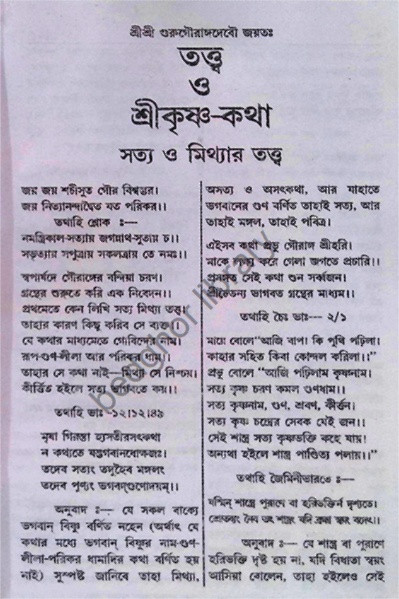 শ্রীশ্রী গুরুগৌরাঙ্গদেবৌ জয়তঃ
তত্ত্ব
ও
শ্রীকৃষ্ণ-কথা
সত্য ও মিথ্যার তত্ত্ব
জয় জয় শচীসুত গৌর বিশ্বম্ভর।
জয় নিত্যানন্দাদ্বৈত যত পরিকর।।
তথাহি শ্লোক ঃ—
নমস্ত্রিকাল-সত্যায় জগন্নাথ-সুতায় চ।।
সভৃত্যায় সপুত্রায় সকলত্রায় তে নমঃ।।
স্বপার্ষদে গৌরাঙ্গের বন্দিয়া চরণ।
গ্রন্থের শুরুতে করি এক নিবেদন।।
প্রথমেতে কেন লিখি সত্য মিথ্যা তত্ত্ব।
তাহার কারণ কিছু করিব সে ব্যক্ত।।
যে কথার মাধ্যমেতে গোবিন্দের নাম।
রূপ-গুণ-লীলা আর পরিকর ধাম।।
তাহার সে কথা নাই—মিথ্যা সে নিশ্চয়।
কীর্ত্তিত হইলে সত্য ভাগবতে কয়।।
তথাহি ভাঃ- ১২।১২।৪৯
মৃষা গিরস্তা হ্যসতীরসৎকথা
ন কথ্যতে যদ্ভগবানধোক্ষজঃ।
তদেব সত্যং তদুহৈব মঙ্গলং
তদেব পুণ্যং ভগবদ্গুণোদয়ম্।।
অনুবাদ ঃ— যে সকল বাক্যে
ভগবান্ বিষ্ণু বর্ণিত নহেন (অর্থাৎ যে
কথার মধ্যে ভগবান্ বিষ্ণুর নাম-গুণ-
লীলা-পরিকর ধামাদির কথা বর্ণিত হয়
নাই) সুস্পষ্ট জানিবে তাহা মিথ্যা,
অসত্য ও অসৎকথা, আর যাহাতে
ভগবানের গুণ বর্ণিত তাহাই সত্য, আর
তাহাই মঙ্গল, তাহাই পবিত্র।
এইসব কথা প্রভু গৌরাঙ্গ শ্রীহরি।
মাকে লক্ষ্য করে গেলা জগতে প্রচারি।।
প্রণমত সেই কথা শুন সর্ব্বজন।
শ্রীচৈতন্য ভাগবত গ্রন্থের মাধ্যম।।
তথাহি চৈঃ ভাঃ- ২/১
মায়ে বোলে“আজি বাপ! কি পুথি পঢ়িলা।
কাহার সহিত কিবা কোন্দল করিলা।।”
প্রভু বোলে“ আজি পঢ়িলাম কৃষ্ণনাম।
সত্য কৃষ্ণ চরণ কমল গুণধাম।।
সত্য কৃষ্ণনাম, গুণ, শ্রবণ, কীর্ত্তন।
সত্য কৃষ্ণ চন্দ্রের সেবক যেই জন।।
সেই শাস্ত্র সত্য কৃষ্ণভক্তি কহে যায়।
অন্যথা হইলে শাস্ত্র পাণ্ডিত্য পলায়।।”
তথাহি জৈমিনীভারতে ঃ—
যস্মিন্ শাস্ত্রে পুরাণে বা হরিভক্তির্ন দৃশ্যতে।
শ্রোতব্যং নৈব তৎ শাস্ত্রং যদি ব্রহ্মা স্বয়ং বদেৎ।।
অনুবাদ ঃ— যে শাস্ত্র বা পুরাণে
হরিভক্তি দৃষ্ট হয় না, যদি বিধাতা স্বয়ং
আসিয়া বোলেন, তাহা হইলেও সেই
bedabor library